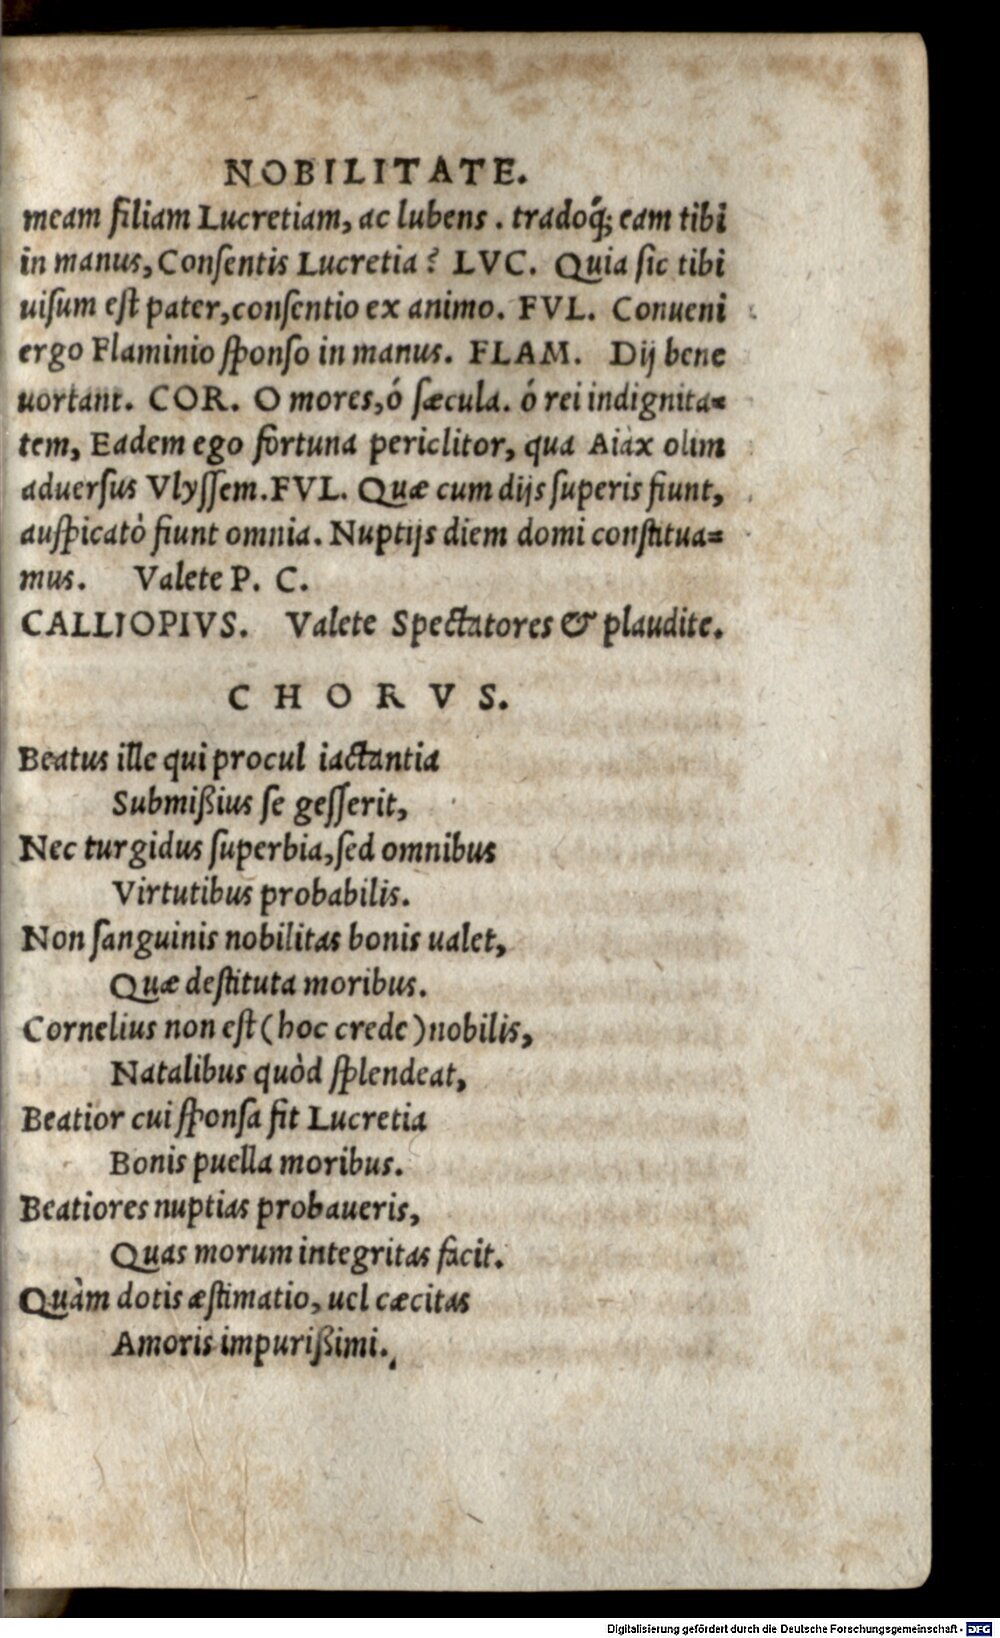 NOBILITATE.
meam filiam Lucretiam, ac lubens. tradoq́; eam tibi
in manus, Consentis Lucretia? LVC. Quia sic tibi
uisum est pater, consentio ex animo. FVL. Conueni
ergo Flaminio sponso in manus. FLAM. Dij bene
uortant. COR. O mores, ó sæcula. ó rei indignita=
tem, Eadem ego fortuna periclitor, qua Aiax olim
aduersus Vlyssem. FVL. Quæ cum dijs superis fiunt,
auspicatò fiunt omnia. Nuptijs diem domi constitua=
mus. Valete P. C.
CALLIOPIVS. Valete Spectatores & plaudite.
CHORVS.
Beatus ille qui procul iactantia
Submißius se gesserit,
Nec turgidus superbia, sed omnibus
Virtutibus probabilis.
Non sanguinis nobilitas bonis ualet,
Quæ destituta moribus.
Cornelius non est (hoc crede) nobilis,
Natalibus quòd splendeat,
Beatior cui sponsa fit Lucretia
Bonis puella moribus.
Beatiores nuptias probaueris,
Quas morum integritas facit.
Quàm dotis æstimatio, uel cæcitas
Amoris impurißimi.
Digitalisierung gefördert durch die Deutsche Forschungsgemeinschaft - DFG